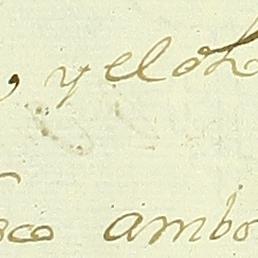 , y elo
sco ambo